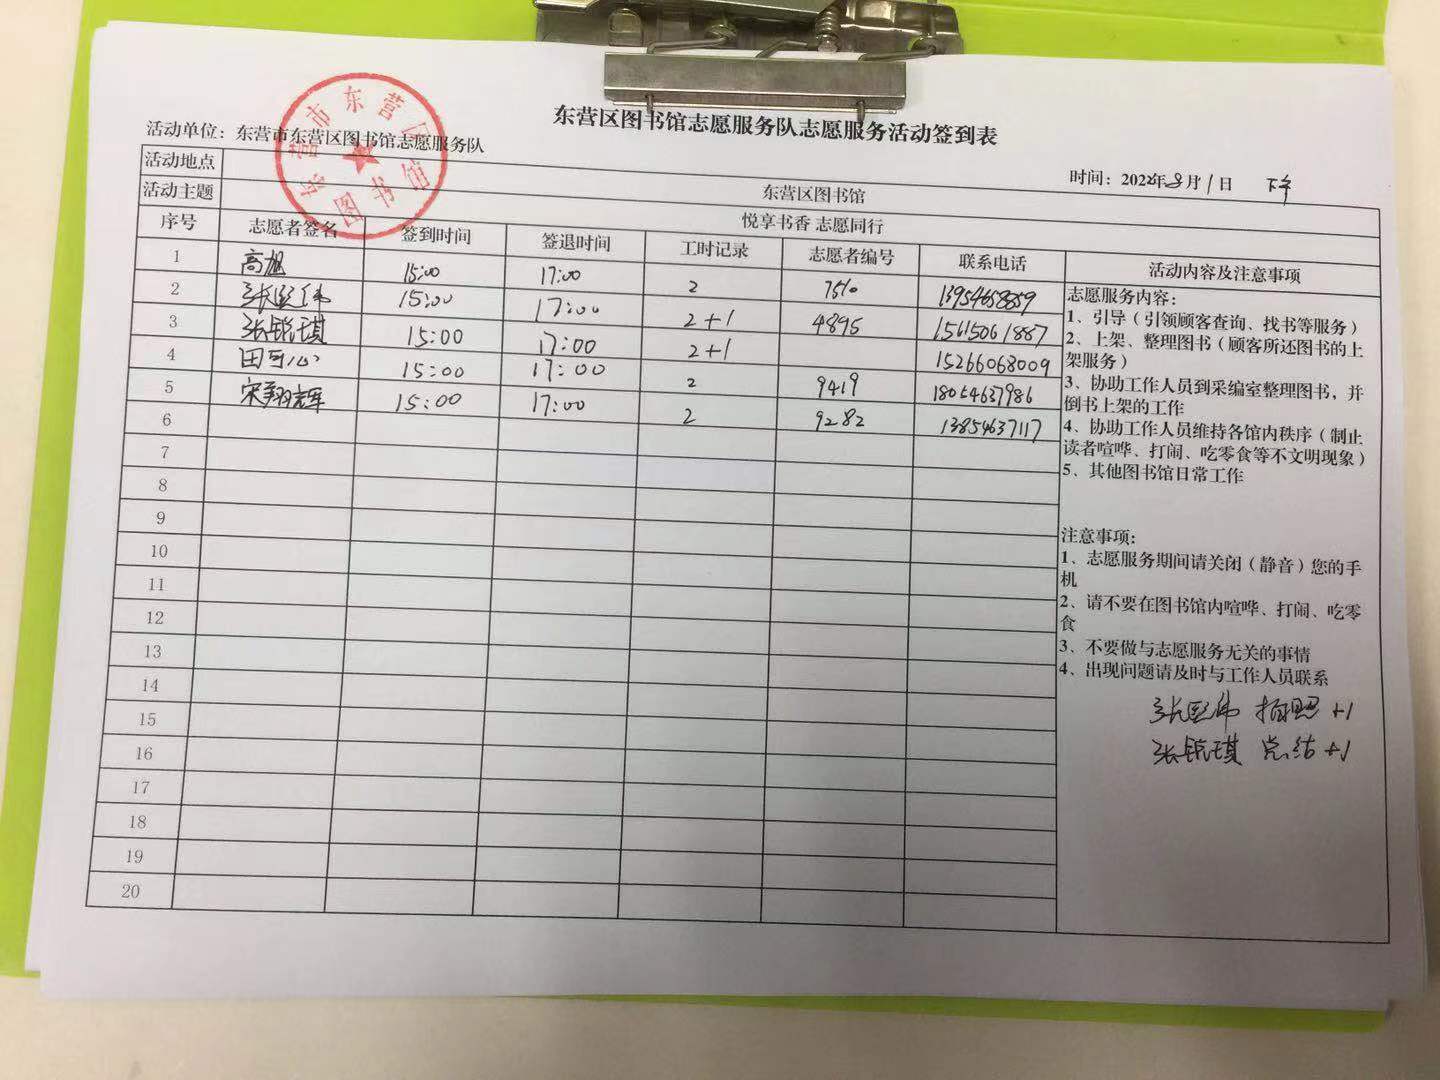 东营区图书馆志愿服务队志愿服务活动签到表
活动单位：东营市东营区图书馆志愿服务队
时间：2022年8月1日 下午
东营市东营区图书馆
活动地点 东营区图书馆
活动主题 悦享书香 志愿同行
序号 志愿者签名 签到时间 签退时间 工时记录 志愿者编号 联系电话 活动内容及注意事项
1 高旭 15:00 17:00 2 7510 13954658859
2 15:00 17:00 2+1 4895 15615061887
3 张锐琪 15:00 17:00 2+1 15266068009
4 田可心 15:00 17:00 2 9419 18054637986
5 宋翔辉 15:00 17:00 2 9282 13854637117
6
7
8
9
10
11
12
13
14
15
16
17
18
19
20
志愿服务内容：
1、引导（引领顾客查询、找书等服务）
2、上架、整理图书（顾客所还图书的上
架服务）
3、协助工作人员到采编室整理图书，并
倒书上架的工作
4、协助工作人员维持各馆内秩序（制止
读者喧哗、打闹、吃零食等不文明现象）
5、其他图书馆日常工作
注意事项:
1、志愿服务期间请关闭（静音）您的手
机
2、请不要在图书馆内喧哗、打闹、吃零
食
3、不要做与志愿服务无关的事情
4、出现问题请及时与工作人员联系
拍照+1
张锐琪 总结+1